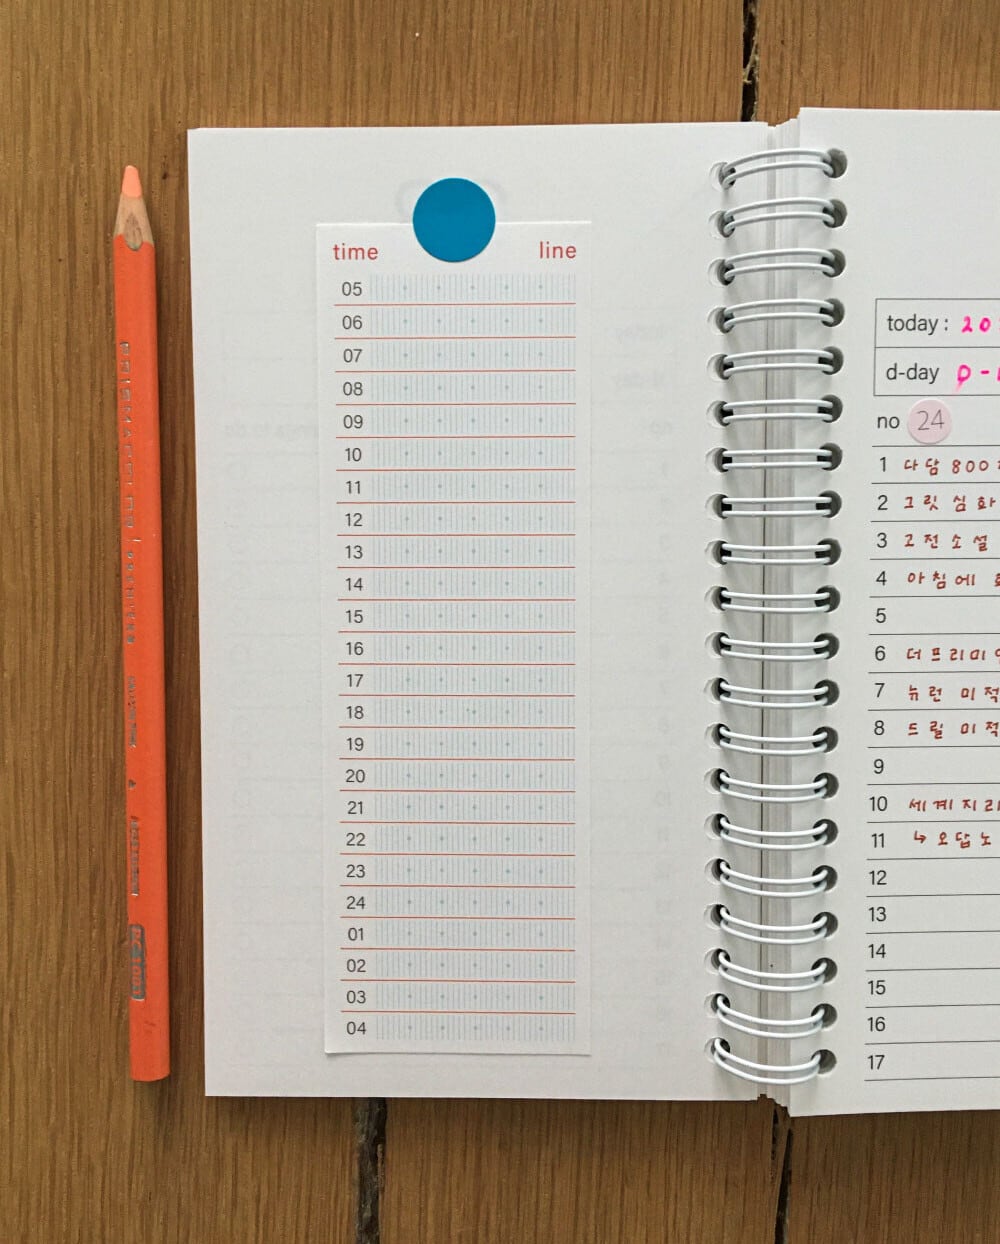 time line
05
06
07
08
09
10
11
12
13
14
15
16
17
18
19
20
21
22
23
24
01
02
03
04
today : 20
d-day D-
no 24
1 다담 800
2 그릿 심화
3 고전소설
4 아침에
5
6 더프리미
7 뉴런 미적
8 드릴 미적
9
10 세계지리
11 ↳ 오답노
12
13
14
15
16
17
PRISMACOLOR
PC1001